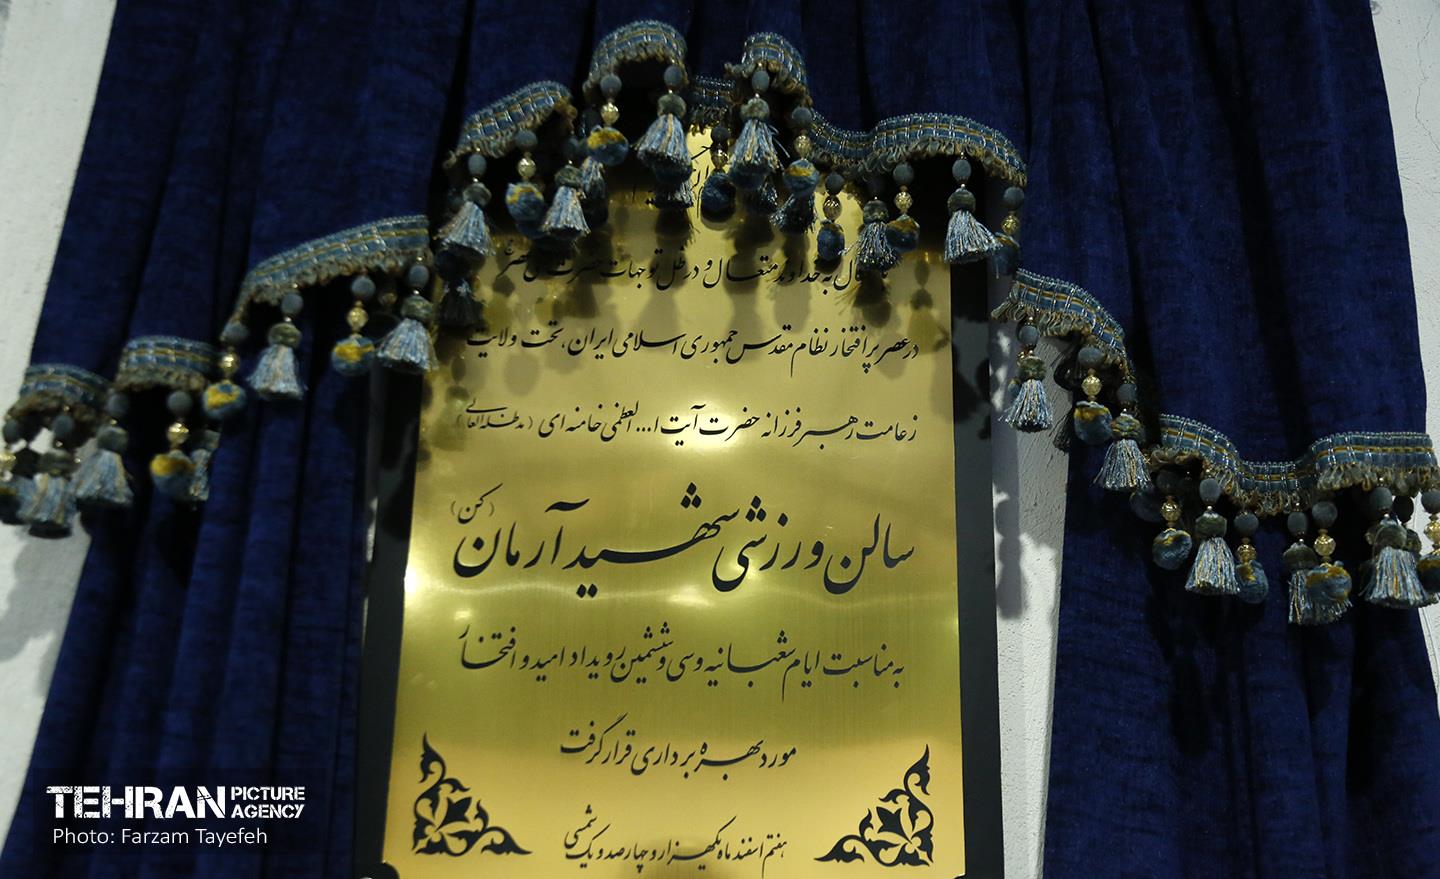 به خداوند متعال و در ظل توجهات حضرت ولی عصر
در عصر پر افتخار نظام مقدس جمهوری اسلامی ایران، تحت ولایت
زعامت رهبر فرزانه حضرت آیت ا... العظمی خامنه ای (مدظله العالی)
سالن ورزشی شهید آرمان (کن)
به مناسبت ایام شعبانیه و سی و ششمین رویداد امید و افتخار
مورد بهره برداری قرار گرفت
هفتم اسفند ماه یکهزار و چهارصد و یک شمسی
TEHRAN PICTURE AGENCY
Photo: Farzam Tayefeh